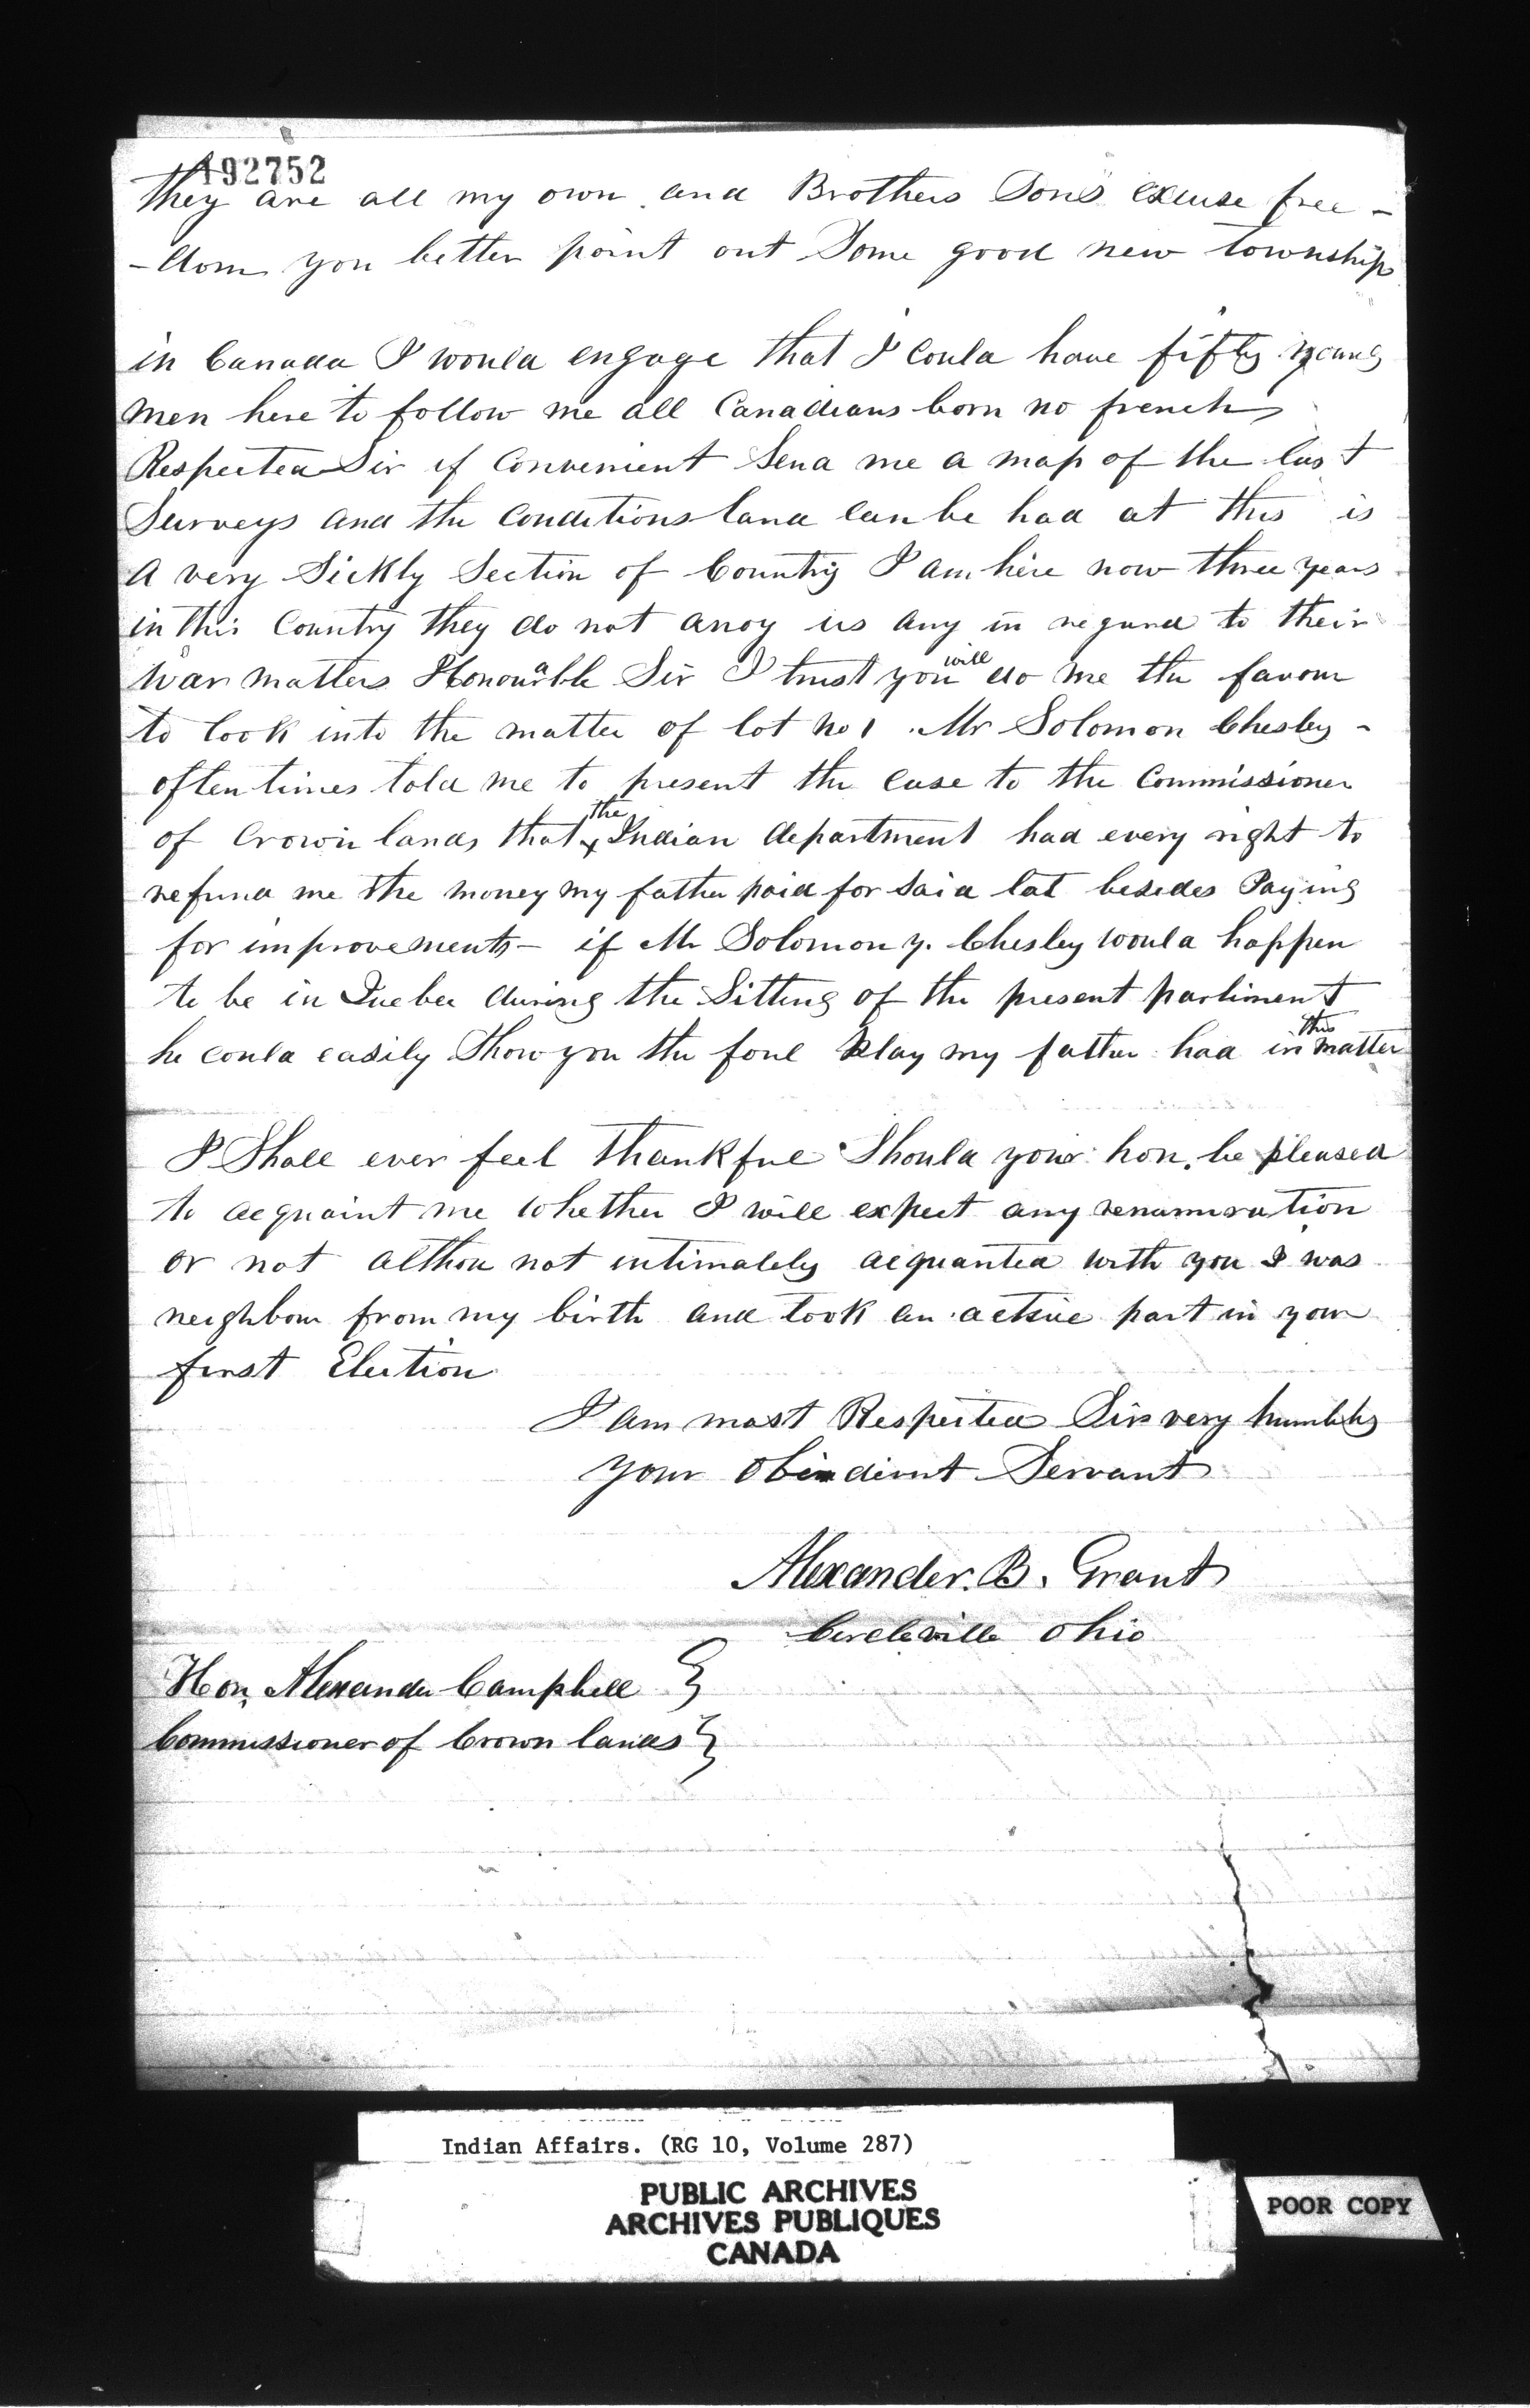 192752
they are all my own and Brothers Sons excuse free-
-dom you better point out Some good new township
in Canada I would engage that I could have fifty young
men here to follow me all Canadians born no french
Respected Sir if Convenient Send me a map of the last
Surveys and the Conditions land can be had at this is
a very Sickly Section of Country I am here now three years
in this Country they do not anoy us any in regard to their
war matters Honourable Sir I trust you will do me the favour
to look into the matter of lot no 1 Mr Solomon Chesley -
often times told me to present the case to the Commissioner
of Crown lands that the Indian department had every right to
refund me the money my father paid for said lot besides Paying
for improvements - if Mr Solomon y. Chesley would happen
to be in Quebec during the Sitting of the present parliment
he could easily Show you the foul Play my father had in this matter
I Shall ever feel thankful Should your hon. be pleased
to acquaint me whether I will expect any renumuration
or not althou not intimately acquanted with you I was
neighbour from my birth and took an active part in your
first Election
I am most Respected Sir very humbly
your obindient Servant
Alexander. B. Grant
Circleville Ohio
Hon. Alexander Campbell }
Commissioner of Crown lands }
Indian Affairs. (RG 10, Volume 287)
PUBLIC ARCHIVES
ARCHIVES PUBLIQUES
CANADA
POOR COPY